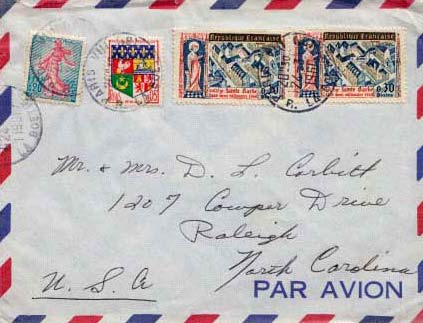 République Française
République Française
Sainte Barbe
Sainte Barbe
0,30
0,30
Postes
Postes
PARIS
Mr. & Mrs. D. L. Corbitt
1207 Cowper Drive
Raleigh
North Carolina
U. S. A
PAR AVION